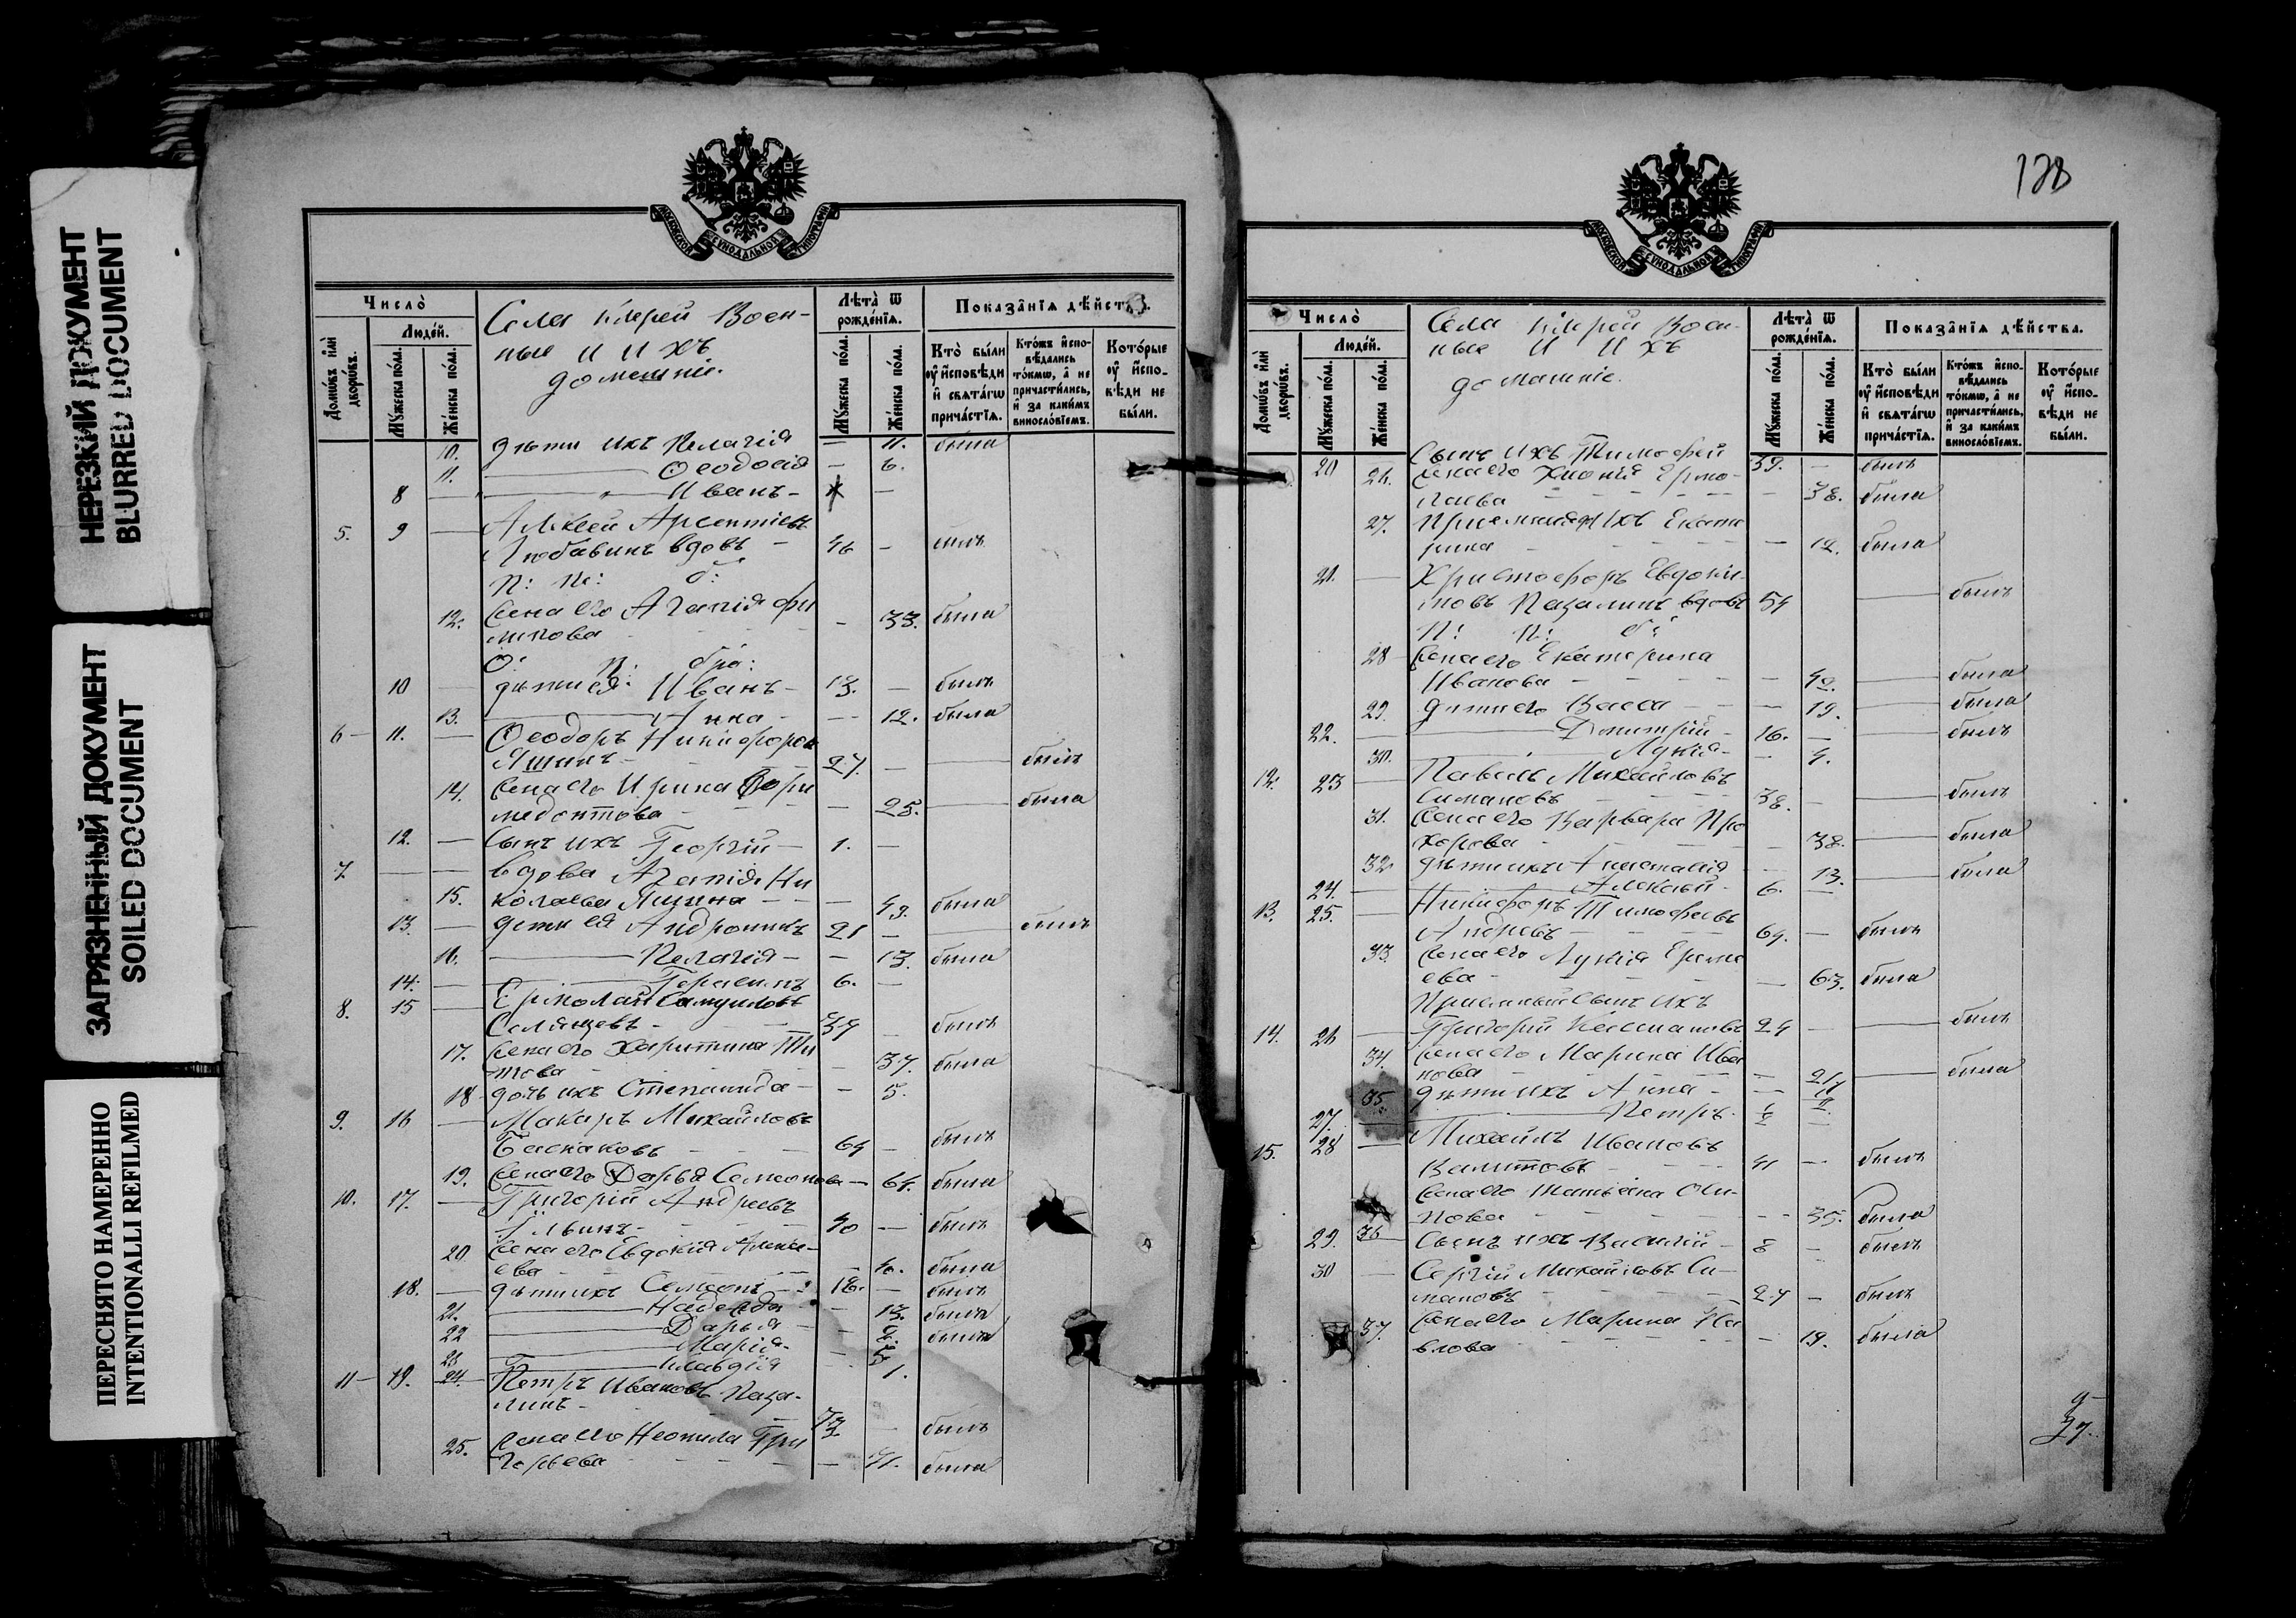 НЕРЕЗКИЙ ДОКУМЕНТ
BLURRED DOCUMENT
ЗАГРЯЗНЕННЫЙ ДОКУМЕНТ
SOILED DOCUMENT
ПЕРЕСНЯТО НАМЕРЕННО
INTENTIONALLI REFILMED
МОСКОВСКОЙ СѴНОДАЛЬНОЙ ТИПОГРАФІИ
Число̀
Домѡ́въ и҆лѝ дворѡ́въ.
Люде́й.
Мꙋ́жеска по́ла.
Же́нска по́ла.
Села Воен-
ные и ихъ
домашніе.
Лѣ́та ѿ рожде́нїѧ.
Мꙋ́жеска по́ла.
Же́нска по́ла.
Показа̑нїѧ дѣ́йства.
Кто̀ бы́ли оу҆ и҆сповѣ́ди и҆ свѧта́гѡ прича́стїѧ.
Кто́жъ и҆сповѣ́дались то́кмѡ, а҆ не причасти́лись, и҆ за каки́мъ винословїемъ.
Кото́рые оу҆ и҆сповѣ́ди не бы́ли.
10. дѣти ихъ Пелагія — 11. была
11. Ѳеодосія — 6.
8 Иванъ —
5. 9 — Алексей Арсентьевъ
Любавинъ вдовъ — 46 — былъ
П: П: б:
12. Жена его Агапія Фи
липова — 33. была
О: П: бра:
10 — дѣти ея: Иванъ — 13. — былъ
13. Анна — 12. была
6 — 11. — Ѳеодоръ Никифоровъ
Яшинъ — 27. — былъ
14. Жена его Ирина
медонтова — 25. — была
12. — Сынъ ихъ Георгій — 1. —
7 — — вдова Агапія Ни
15. колаева Яшина — 49. была
13. — дети ея Андроникъ 21 — былъ
16. Пелагія — 13. была
14. — Герасимъ 6. —
8. 15 — Ермолай Самуиловъ
Селянцевъ — 39 — былъ
17. Жена его Харитина Ти
това — 37. была
18 дочь ихъ Степанида — 5.
9. 16 — Макаръ Михайловъ
Баскаковъ — 64 — былъ
19. Жена его Дарья Семенова — 64. была
10. 17. — Григорій Андреевъ
— 40 — былъ
20 Жена его Евдокія Алексе-
ева — 40. была
18. — дѣти ихъ Семеонъ 16. — былъ
21. Надежда — 13. была
22 Дарья — 8. была
23 Марія — 5
24. Клавдія 1.
11 — 19. Петръ Ивановъ Паза-
линъ — 73 — былъ
25. Жена его Неонила Гри
горьева — 71. была
128
МОСКОВСКОЙ СѴНОДАЛЬНОЙ ТИПОГРАФІИ
Число̀
Домѡ́въ и҆лѝ дворѡ́въ.
Люде́й.
Мꙋ́жеска по́ла.
Же́нска по́ла.
Села Воен-
ные и ихъ
домашніе.
Лѣ́та ѿ рожде́нїѧ.
Мꙋ́жеска по́ла.
Же́нска по́ла.
Показа̑нїѧ дѣ́йства.
Кто̀ бы́ли оу҆ и҆сповѣ́ди и҆ свѧта́гѡ прича́стїѧ.
Кто́жъ и҆сповѣ́дались то́кмѡ, а҆ не причасти́лись, и҆ за каки́мъ винословїемъ.
Кото́рые оу҆ и҆сповѣ́ди не бы́ли.
20 Сынъ ихъ Тимофей 39. — былъ
26. Жена его Хіонія Ермо-
лаева — 38. была
27. Екате
рина — 12. была
21. — Христофоръ Евдоки-
мовъ Пазалинъ вдовъ 54 — былъ
П: П: б:
28 Жена его Екатерина
Иванова — 42. — была
29. дѣти его Васса — 19. — была
22. Дмитрій — 16. — былъ
30. Лукія — 9.
12. 23 — Павелъ Михайловъ
Симановъ 38. — былъ
31. Жена его Варвара Про
хорова — 38. — была
32 дѣти ихъ Анастасія — 13. — была
24. — Алексей — 6. —
13. 25. — Никифоръ Тимофеевъ
Андреевъ 64. — былъ
33. Жена его Лукія Ереме
ева — 63. была
Приемный сынъ ихъ
14. 26 — Григорій 24 — былъ
34. Жена его Марина Ива
нова — 21. — была
35. дѣти ихъ Анна —
27. Петръ
15. 28 — Михаилъ Ивановъ
41 — былъ
Жена его Татьяна Оси-
пова — 35. была
29. 36 Сынъ ихъ Василій — 8 — былъ
30 — Сергій Михайловъ Си-
мановъ — 27 — былъ
37. Жена его Марина Па
влова — 19. была